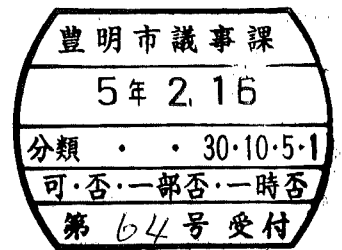 豊明市議事課
5年 2.16
分類 ・ ・ 30・10・5・1
可・否・一部否・一時否
第 64 号 受付